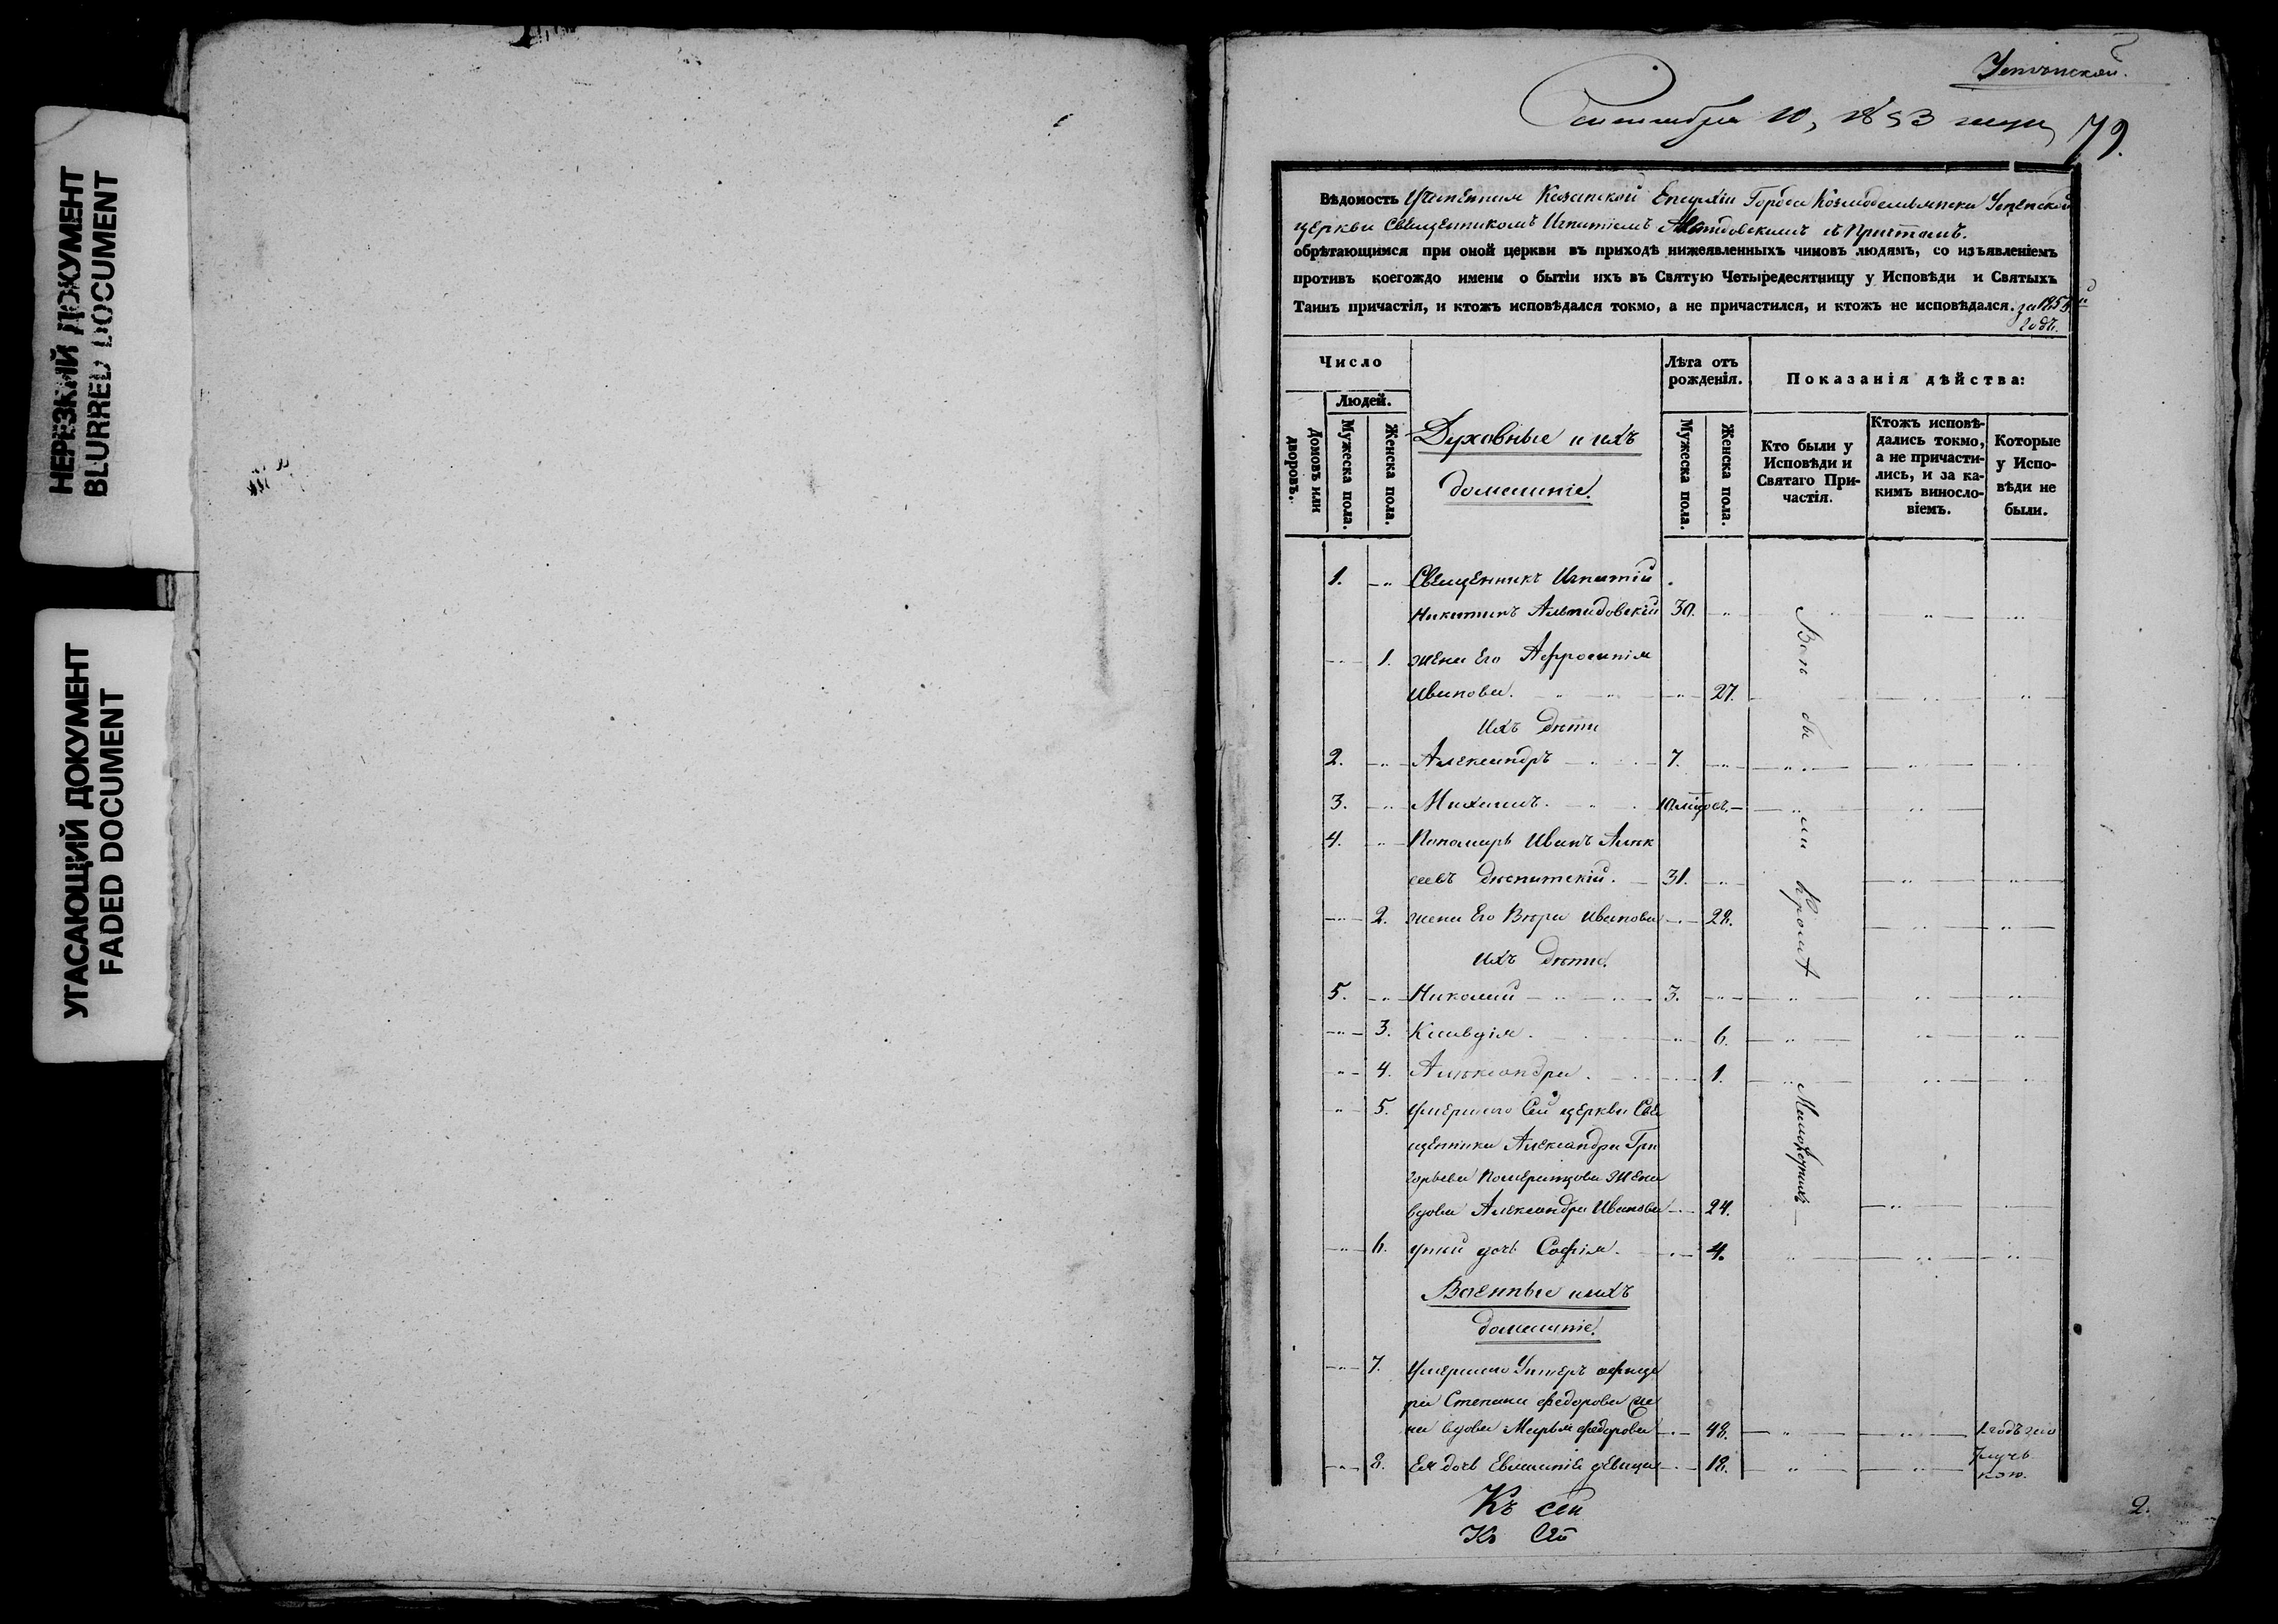 НЕРЕЗКИЙ ДОКУМЕНТ
BLURRED DOCUMENT
УГАСАЮЩИЙ ДОКУМЕНТ
FADED DOCUMENT
Сентября 10, 1853 года
79.
Вѣдомость Казанской Епархіи Города Козмодемьянска
церкви Священникомъ Игнатіемъ съ Причтомъ.
обрѣтающимся при оной церкви въ приходѣ нижеявленныхъ чиновъ людямъ, со изъявленіемъ
противъ коегождо имени о бытіи ихъ въ Святую Четыредесятницу у Исповѣди и Святыхъ
Таинъ причастія, и ктожъ исповѣдался токмо, а не причастился, и ктожъ не исповѣдался. за 1853й
годъ.
Число
Людей.
Домовъ или дворовъ.
Мужеска пола.
Женска пола.
Духовные и ихъ
домашніе.
Лѣта отъ рожденія.
Мужеска пола.
Женска пола.
Показанія дѣйства:
Кто были у Исповѣди и Святаго Причастія.
Ктожъ исповѣдались токмо, а не причастились, и за какимъ винословіемъ.
Которые у Исповѣди не были.
1. Священникъ Игнатій
Никитинъ 30.
1. жена Его Афросинія
Иванова. 27.
Ихъ дѣти
2. Александръ 7.
3. Михаилъ.
4. Пономарь Иванъ Алек
сѣевъ 31.
2. жена Его Вѣра Иванова 28.
Ихъ дѣти.
5. Николай 3.
3. Клавдія. 6.
4. Александра. 1.
5. умершаго Сей церкви Свя
щенника Александра Гри
горьева Померанцова жена
вдова Александра Иванова 24.
6. у ней дочь Софія. 4.
Всѣ бы ли кромѣ Малолѣтнихъ
Военные и ихъ
домашніе.
7. Умершаго Унтеръ офице
ра Степана Федорова же
на вдова Марья Федорова 48.
8. Ея дочь девица 18.
Къ сей
Къ Сей
2.